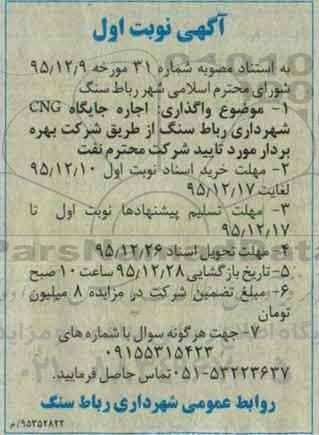 آگهی نوبت اول
به استناد مصوبه شماره ۳۱ مورخه ۹۵/۱۲/۹
شورای محترم اسلامی شهر رباط سنگ
۱- موضوع واگذاری: اجاره جایگاه CNG
شهرداری رباط سنگ از طریق شرکت بهره
بردار مورد تایید شرکت محترم نفت
۲- مهلت خرید اسناد نوبت اول ۹۵/۱۲/۱۰
لغایت ۹۵/۱۲/۱۷
۳- مهلت تسلیم پیشنهادها نوبت اول تا
۹۵/۱۲/۱۷
۴- مهلت تحویل اسناد ۹۵/۱۲/۲۶
۵- تاریخ بازگشایی ۹۵/۱۲/۲۸ ساعت ۱۰ صبح
۶- مبلغ تضمین شرکت در مزایده ۸ میلیون
تومان
۷- جهت هر گونه سوال با شماره های
۰۹۱۵۵۳۱۵۴۲۳
۰۵۱-۵۳۲۲۳۶۳۷ تماس حاصل فرمایید.
روابط عمومی شهرداری رباط سنگ
۹۵۳۵۲۸۲۲/م